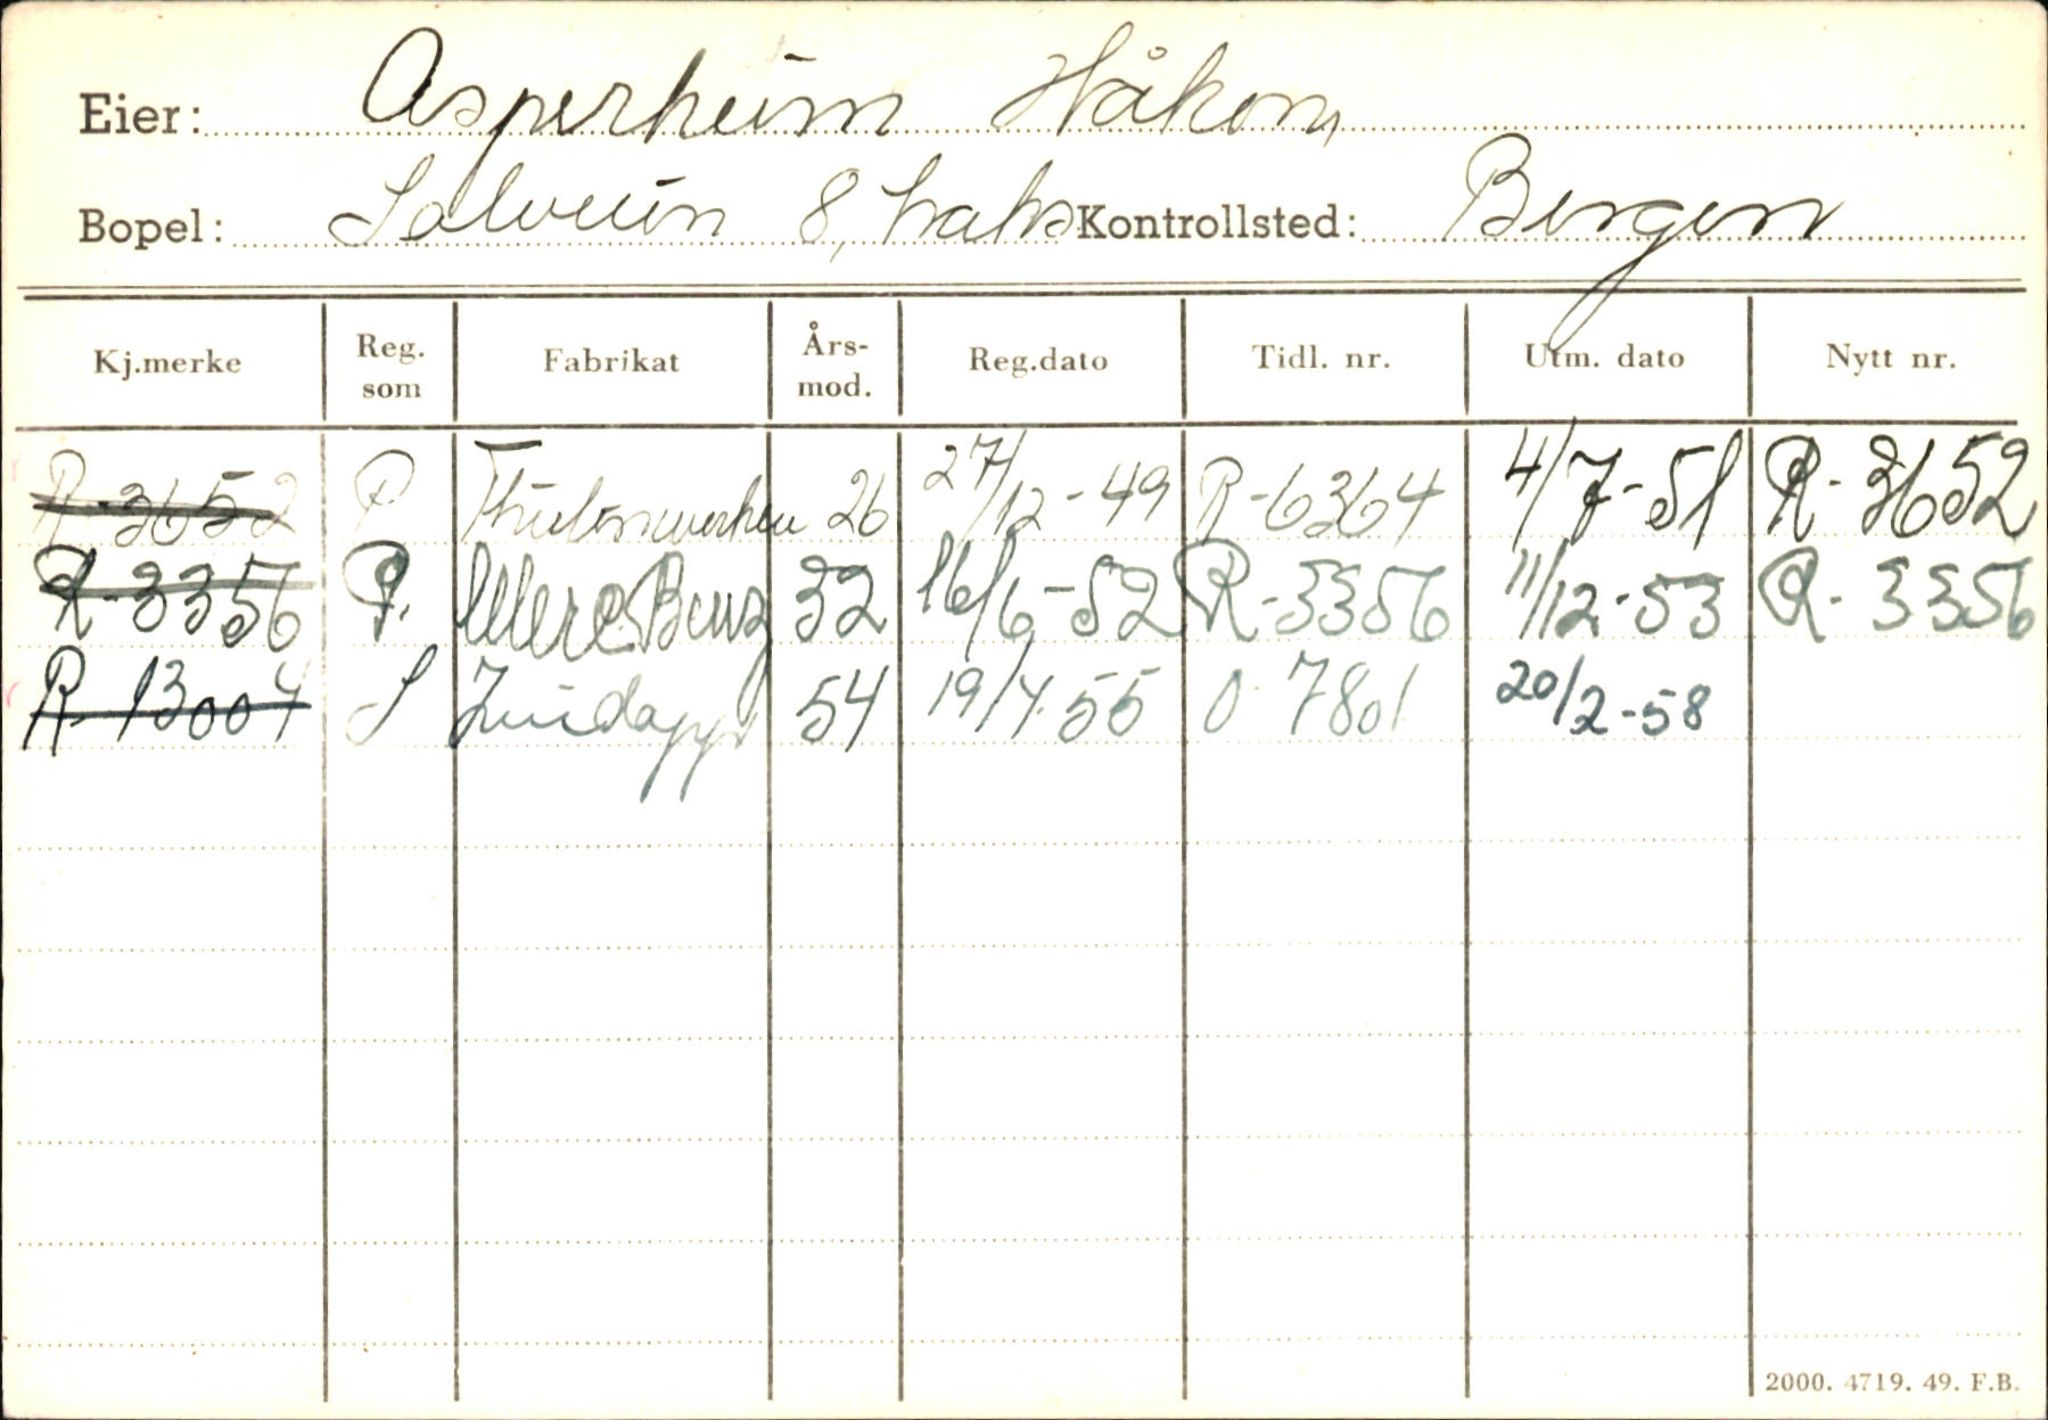 Eier: Asperheim Håkon,
Bopel: Solveien 8, Laks Kontrollsted: Bergen
Kj.merke Reg. som Fabrikat Års-mod. Reg.dato Tidl. nr. Utm. dato Nytt nr.
R-3652 P 26 27/12-49 R-6364 4/7-51 R-3652
R-3356 P. Merc.Benz 32 16/6-52 R-3356 11/12-53 R-3356
R-13004 S Zundapp 54 19/4.55 O-7801 20/2-58
2000. 4719. 49. F.B.